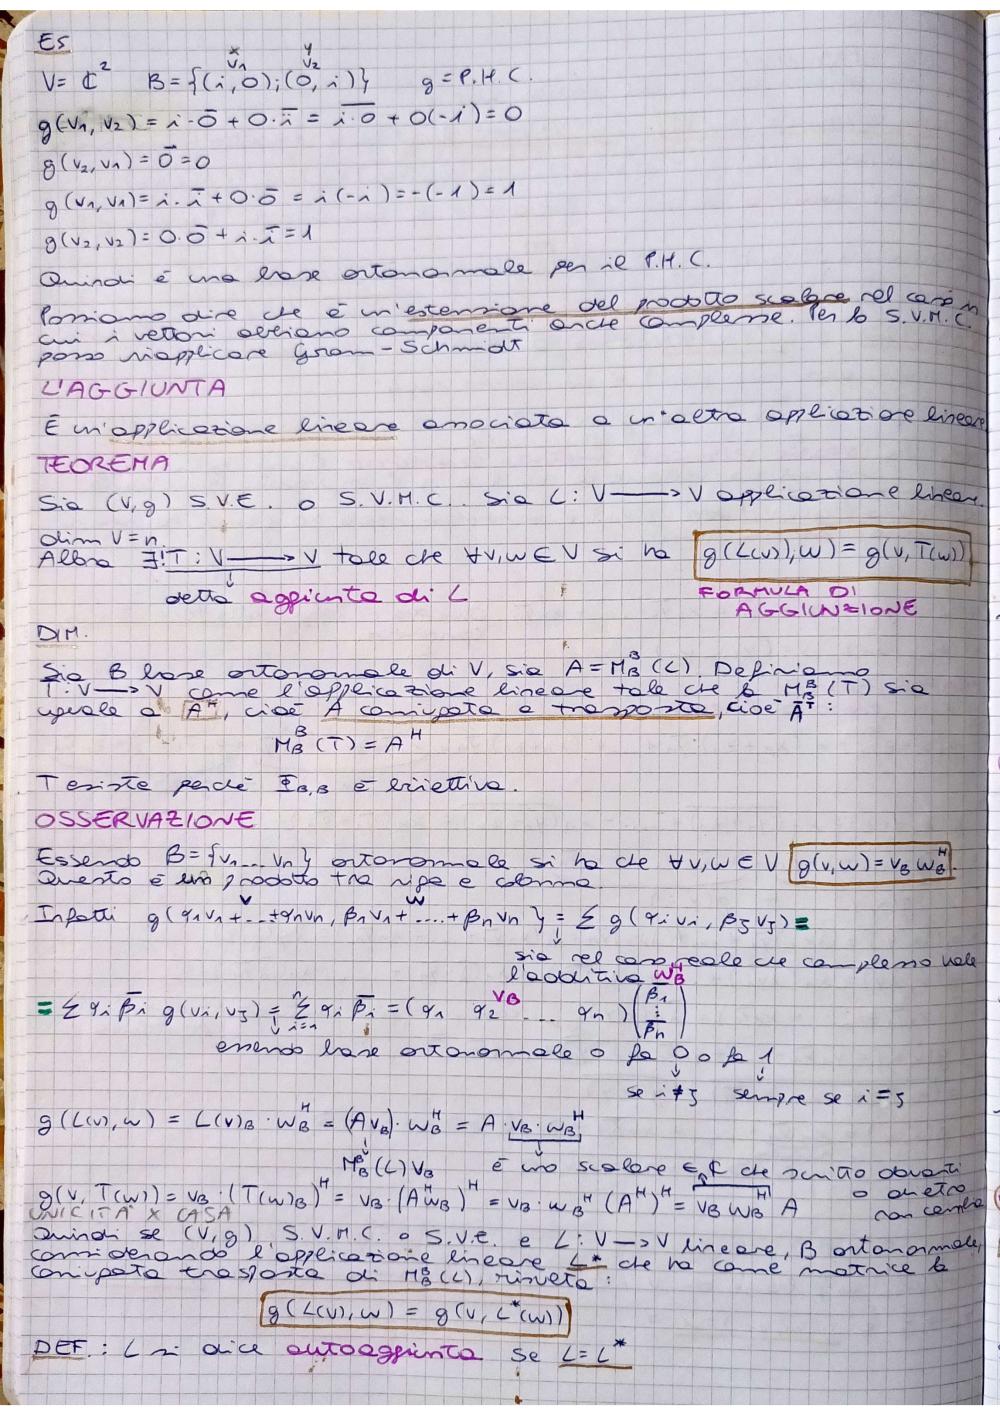 ES
x y
V = ℂ² B={(i,0);(0,i)} g = P.H.C.
v₁ v₂
g(v₁,v₂) = i·0̄ + 0·ī = i·0̄ + 0(-i) = 0
g(v₂,v₁) = 0̄ = 0
g(v₁,v₁) = i·ī + 0·0̄ = i(-i) = -(-1) = 1
g(v₂,v₂) = 0·0̄ + i·ī = 1
Quindi è una base ortonormale per il P.H.C.
Possiamo dire che è un'estensione del prodotto scalare nel caso in
cui i vettori abbiano componenti anche complesse. Per lo S.V.H.C.
posso riapplicare Gram-Schmidt
L'AGGIUNTA
È un'applicazione lineare associata a un'altra applicazione lineare
TEOREMA
Sia (V,g) S.V.E. o S.V.H.C. Sia L: V → V applicazione lineare.
dim V = n.
Allora ∃! T: V → V tale che ∀v,w ∈ V si ha g(L(v),w) = g(v,T(w))
detta aggiunta di L FORMULA DI
AGGIUNZIONE
DIM.
Sia B base ortonormale di V, sia A = M_B^B (L). Definiamo
T: V → V come l'applicazione lineare tale che la M_B^B (T) sia
uguale a A^H, cioè A coniugata e trasposta, cioè Ā^T :
M_B^B (T) = A^H
T esiste perché Φ_B,B è biiettiva.
OSSERVAZIONE
Essendo B={v₁...vₙ} ortonormale si ha che ∀v,w ∈ V g(v,w) = v_B w_B^H.
Questo è un prodotto tra riga e colonna.
v w
Infatti g(α₁v₁+...+αₙvₙ, β₁v₁+....+βₙvₙ) = Σ g(αᵢvᵢ, βⱼvⱼ) =
sia nel caso reale che complesso vale
l'additiva w_B^H
= Σ αᵢ β̄ᵢ g(vᵢ,vⱼ) = Σ_{i=1}^n αᵢ β̄ᵢ = (α₁ α₂ ... αₙ) (β̄₁ ⋮ β̄ₙ)
v_B
essendo base ortonormale o fa 0 o fa 1
se i≠j sempre se i=j
g(L(v),w) = L(v)_B · w_B^H = (A v_B) · w_B^H = A · v_B · w_B^H
M_B^B (L) v_B è uno scalare che scritto davanti
o dietro
non cambia
g(v,T(w)) = v_B · (T(w)_B)^H = v_B · (A^H w_B)^H = v_B · w_B^H (A^H)^H = v_B w_B^H A
UNICITÀ X CASA
Quindi se (V,g) S.V.H.C. o S.V.E. e L: V → V lineare, B ortonormale,
considerando l'applicazione lineare L* che ha come matrice la
coniugata trasposta di M_B^B (L), risulta:
g(L(v),w) = g(v,L*(w))
DEF.: L si dice autoaggiunta se L = L*